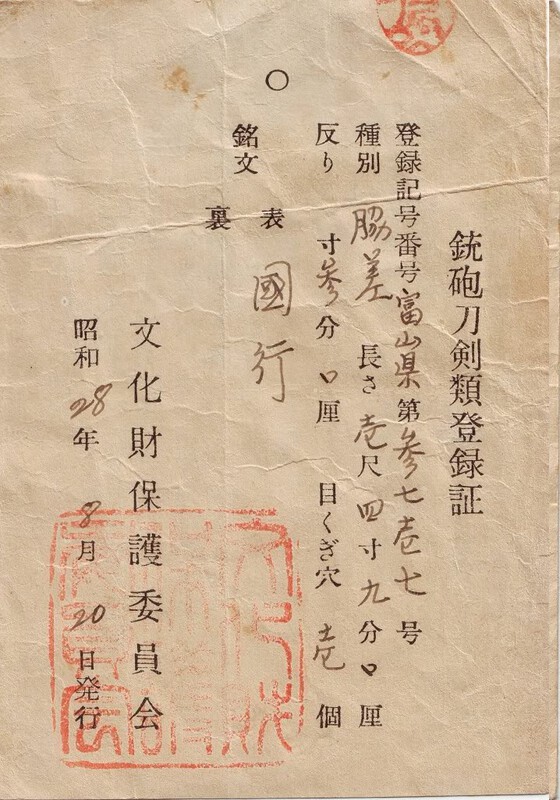 銃砲刀剣類登録証
登録記号番号富山県第参七壱七号
種別 脇差 長さ壱尺四寸九分口厘
反り 寸参分口厘 目くぎ穴 壱個
銘文 表 國行
裏
文化財保護委員会
昭和28年8月20日発行